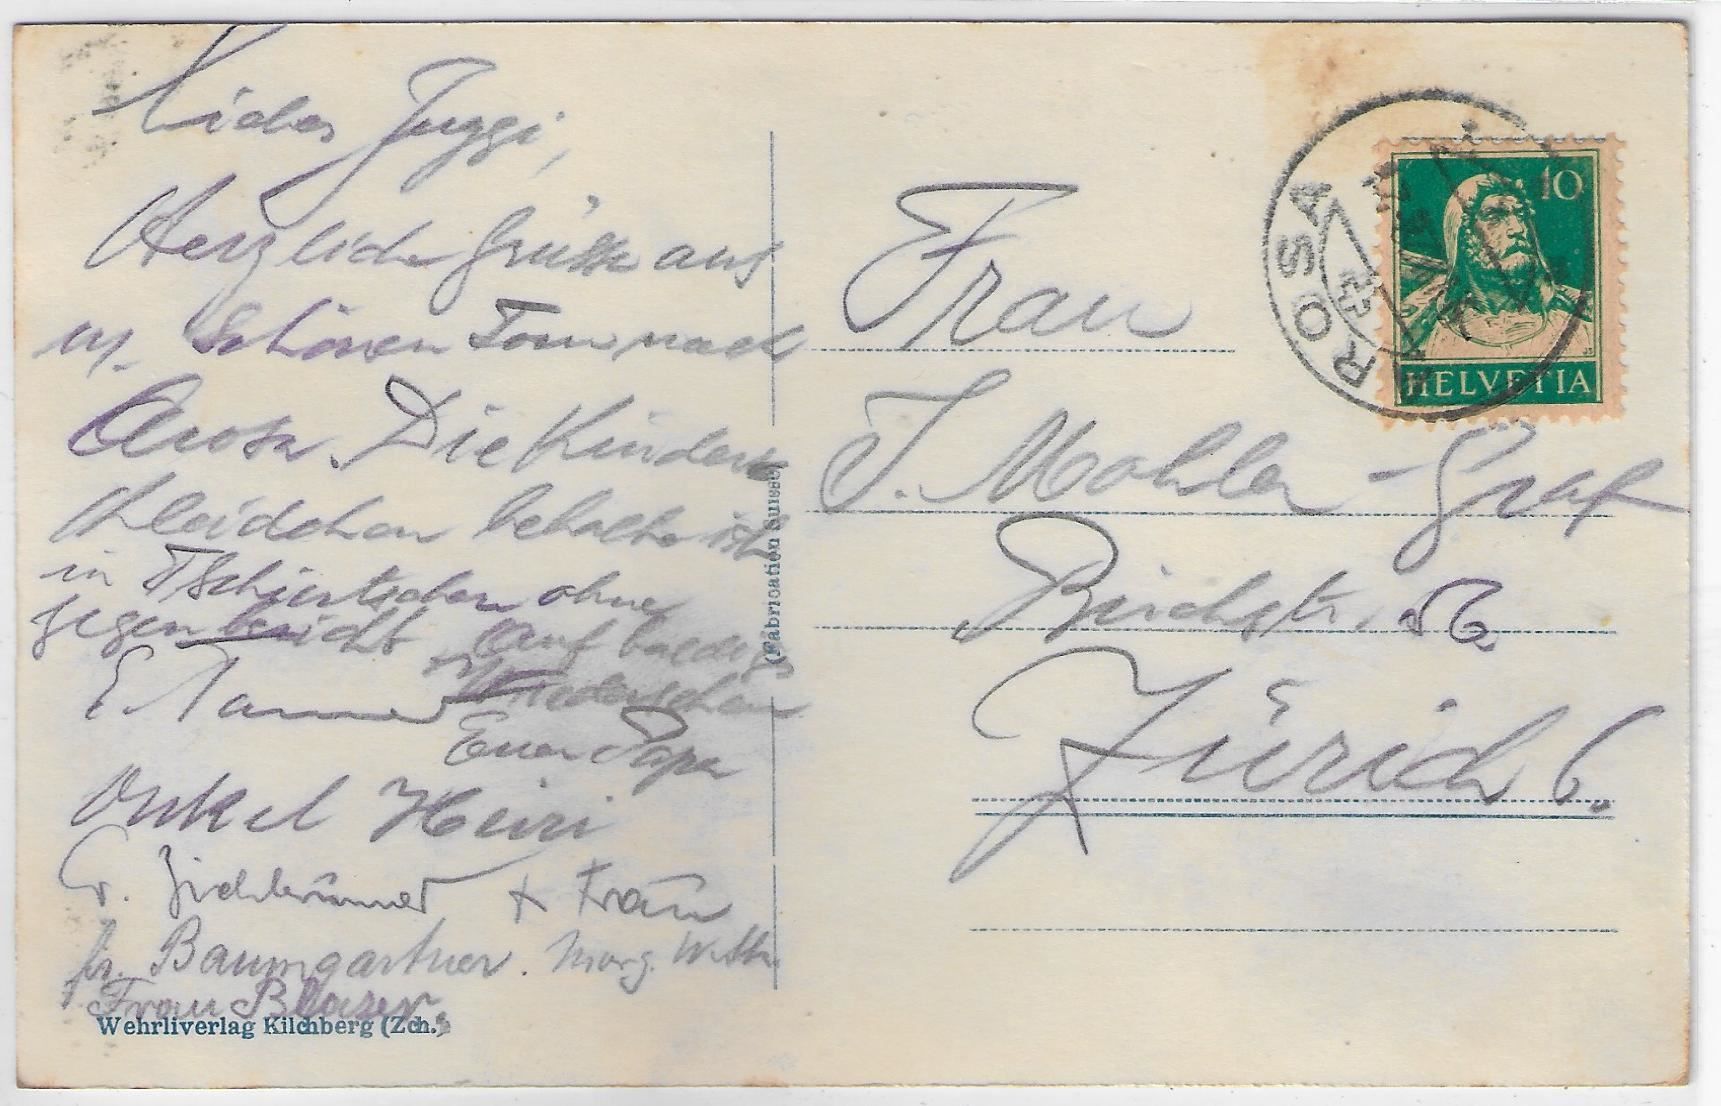 Liebes Juggi,
Herzliche Grüsse aus
schönen Tour nach
Arosa. Die Kinder
Kleidchen behalte ich
in Tschiertschen ohne
gegenbericht Auf baldiges
Wiedersehen
E. Tanner
Euer Papa
Onkel Heiri
+ Frau
Fr. Baumgartner. Marg.
Frau Blaser
Wehrliverlag Kilchberg (Zch.)
(Fabrication Suisse)
Frau
J. Mohler-Graf
Birchstr. 56
Zürich 6.
AROSA
10
HELVETIA